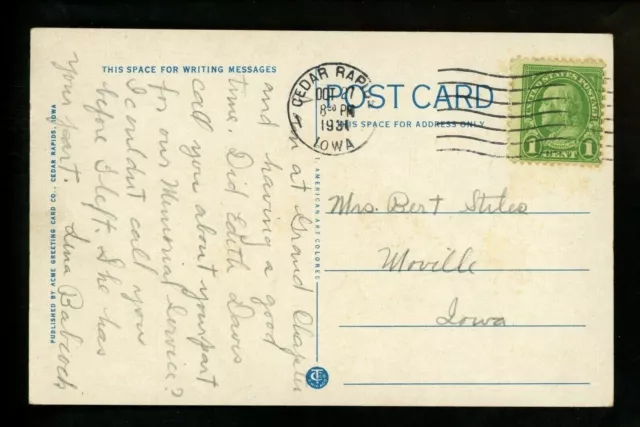 THIS SPACE FOR WRITING MESSAGES
POST CARD
THIS SPACE FOR ADDRESS ONLY
CEDAR RAP
OCT 7
8 30 PM
1931
IOWA
UNITED STATES POSTAGE
1 CENT 1
am at Grand Chapter
and having a good
time. Did Edith Davis
call you about your part
for our Memorial Service?
I couldn't call you
before I left. She has
your part. Lena Babcock
Mrs. Bert Stiles
Moville
Iowa
PUBLISHED BY ACME GREETING CARD CO., CEDAR RAPIDS, IOWA
AMERICAN ART COLORED